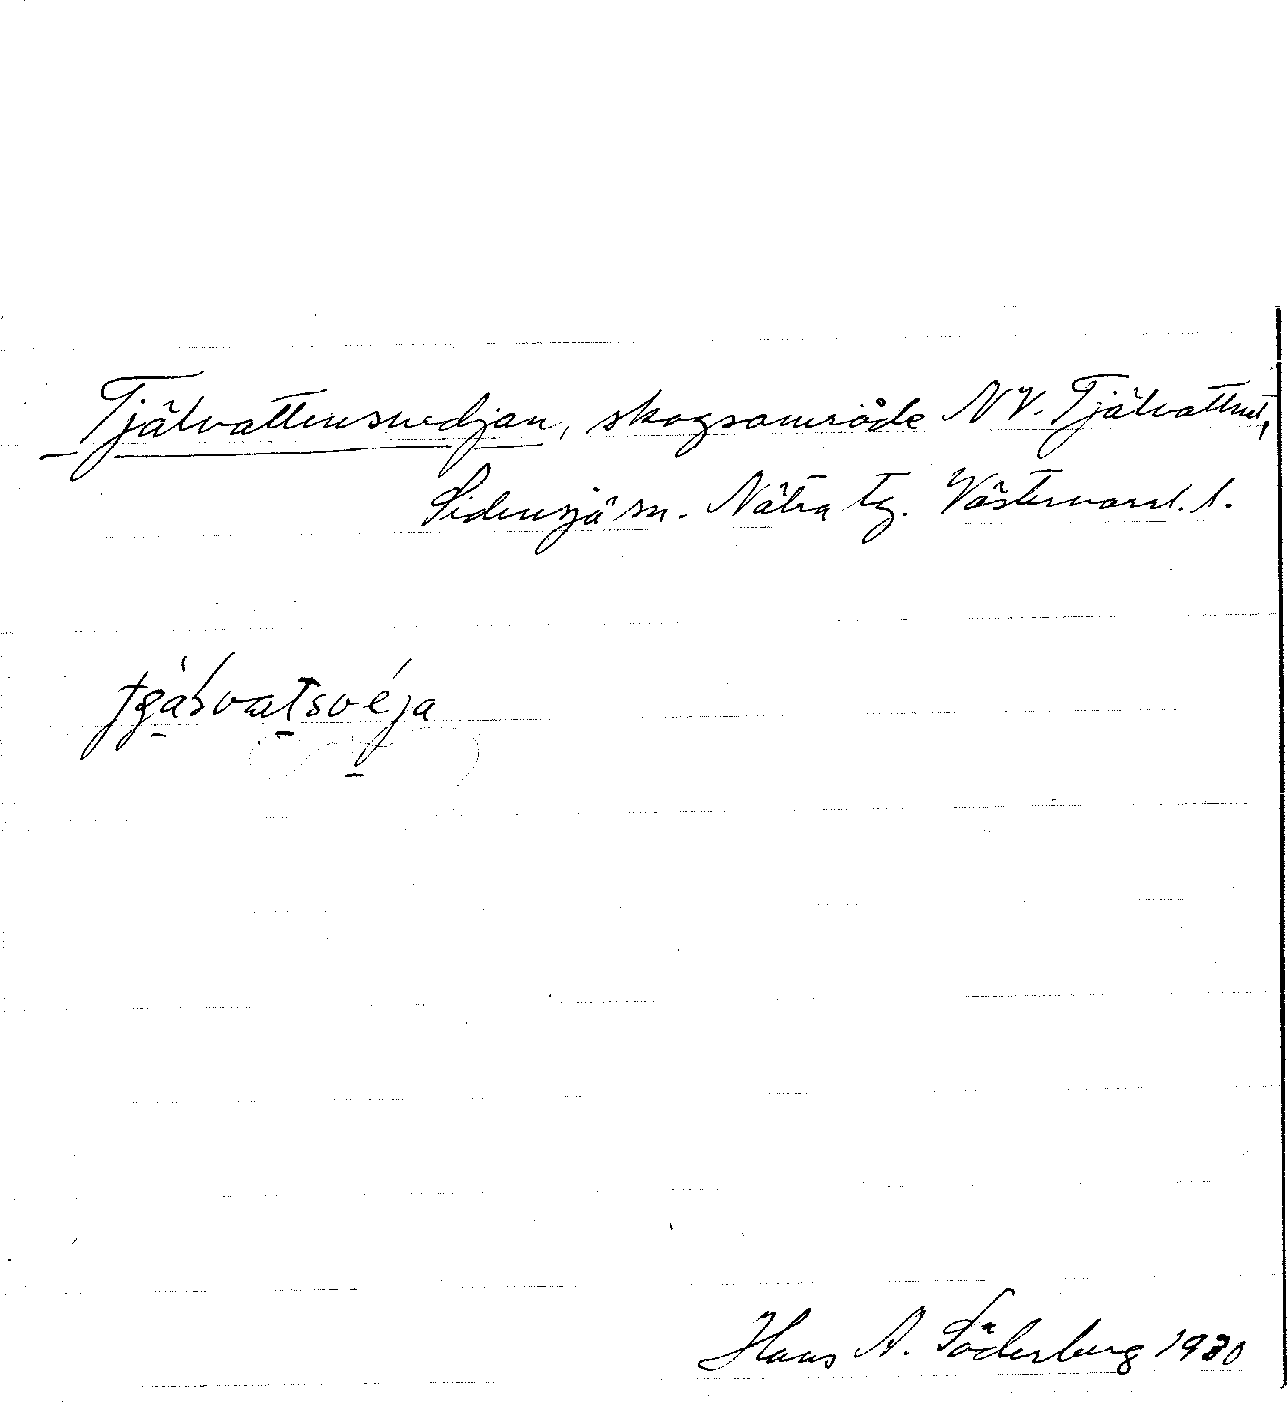 Tjälvattensvedjan, skogsområde NV. Tjälvattnet,
Sidensjö sn. Nätra tg. Västernorrl. l.
Hans A. Söderberg 1930